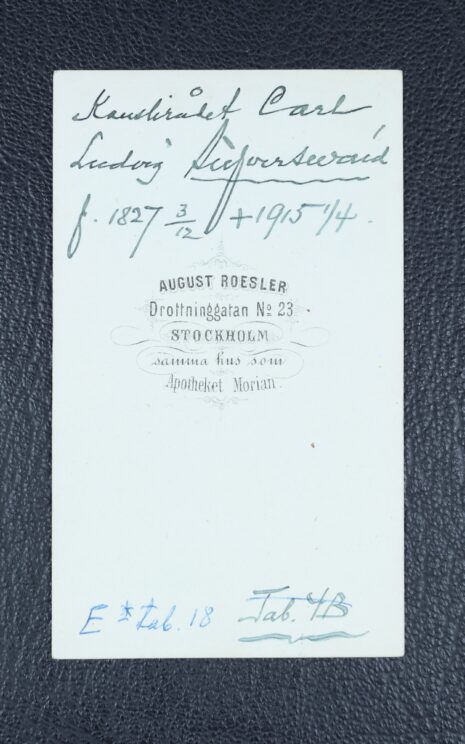 Kanslirådet Carl
Ludvig Silfversward
f. 1827 3/12 +1915 1/4.
AUGUST ROESLER
Drottninggatan No 23
STOCKHOLM
samma hus som
Apotheket Morian.
tab. 18
Tab. 4B